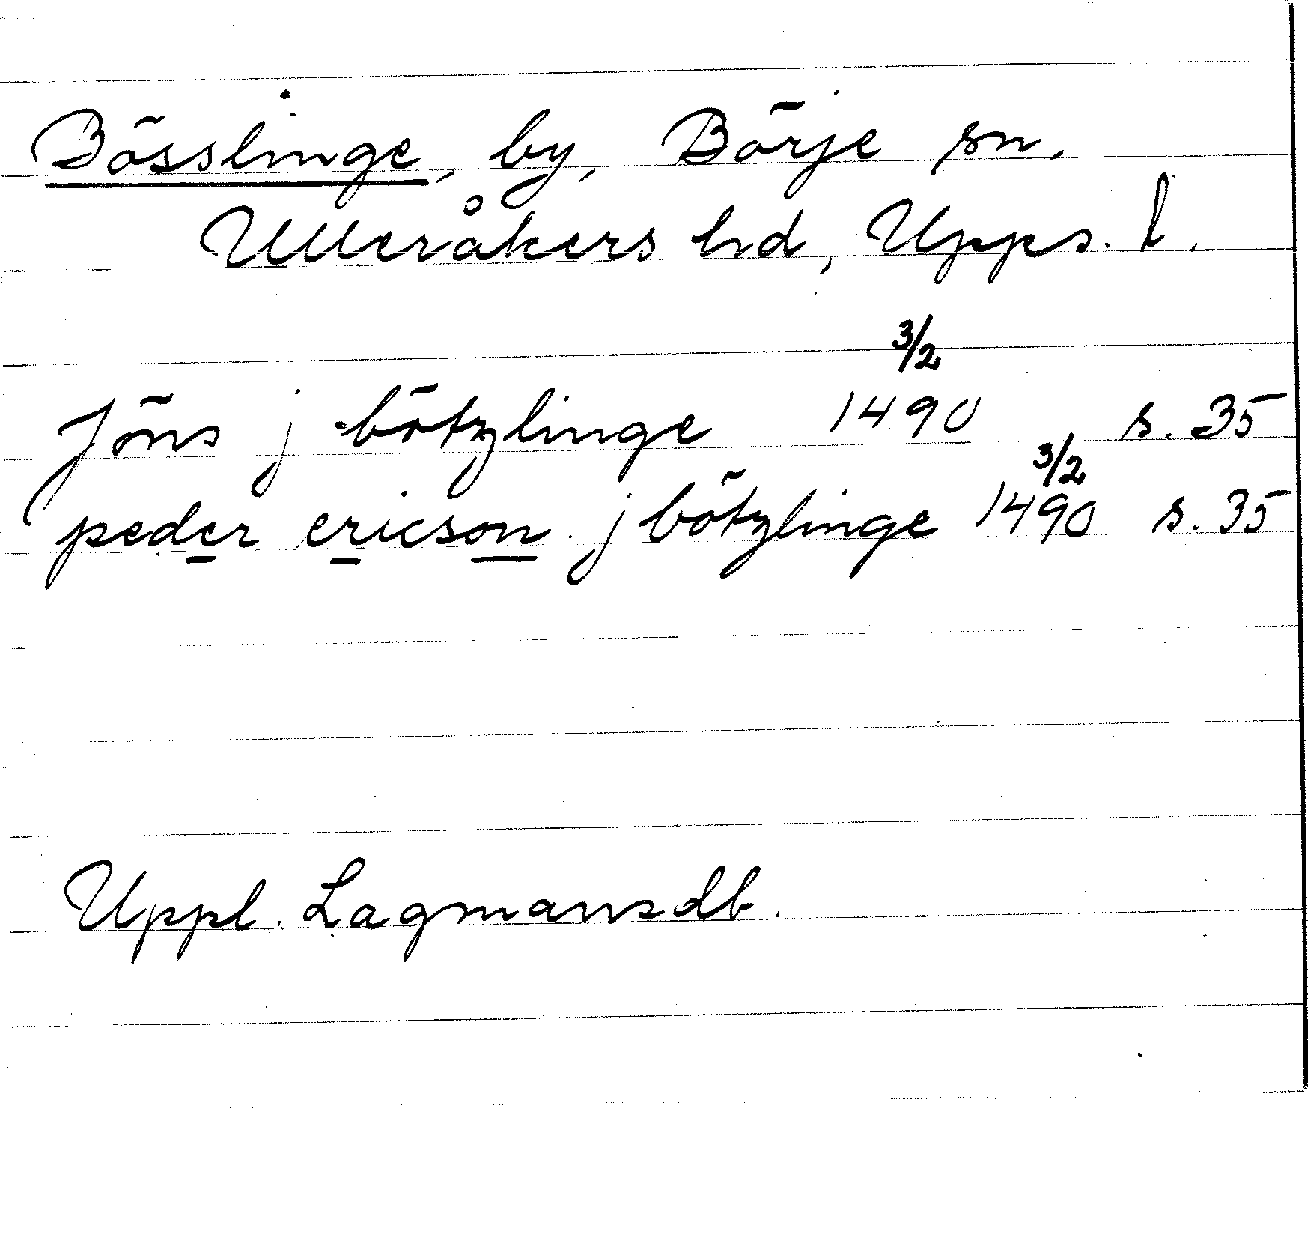 Bösslinge, by, Börje sn.
Ulleråkers hd, Upps. l.
Jöns j bötzlinge 1490 3/2 s. 35
peder ericson j bötzlinge 1490 3/2 s. 35
Uppl. Lagmansdb.